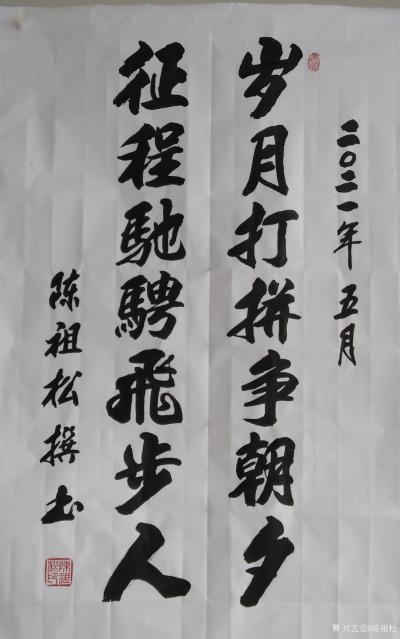 二〇二一年 五月
岁月打拼争朝夕
征程馳騁飛步人
陈祖松撰书
陳祖松印
兴艺堂@陈祖松